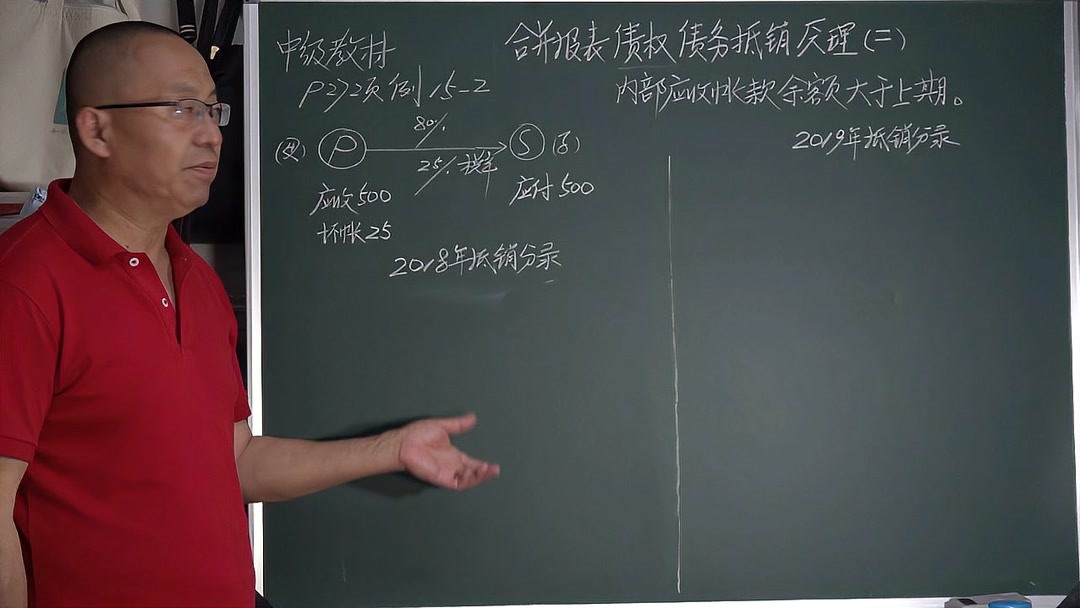 合并报表债权债务抵销原理(二)
中级教材
P272页例15-2
内部应收帐款余额大于上期。
80%
(母) P S (子)
25%税率
应收500
应付500
坏帐25
2018年抵销分录
2019年抵销分录